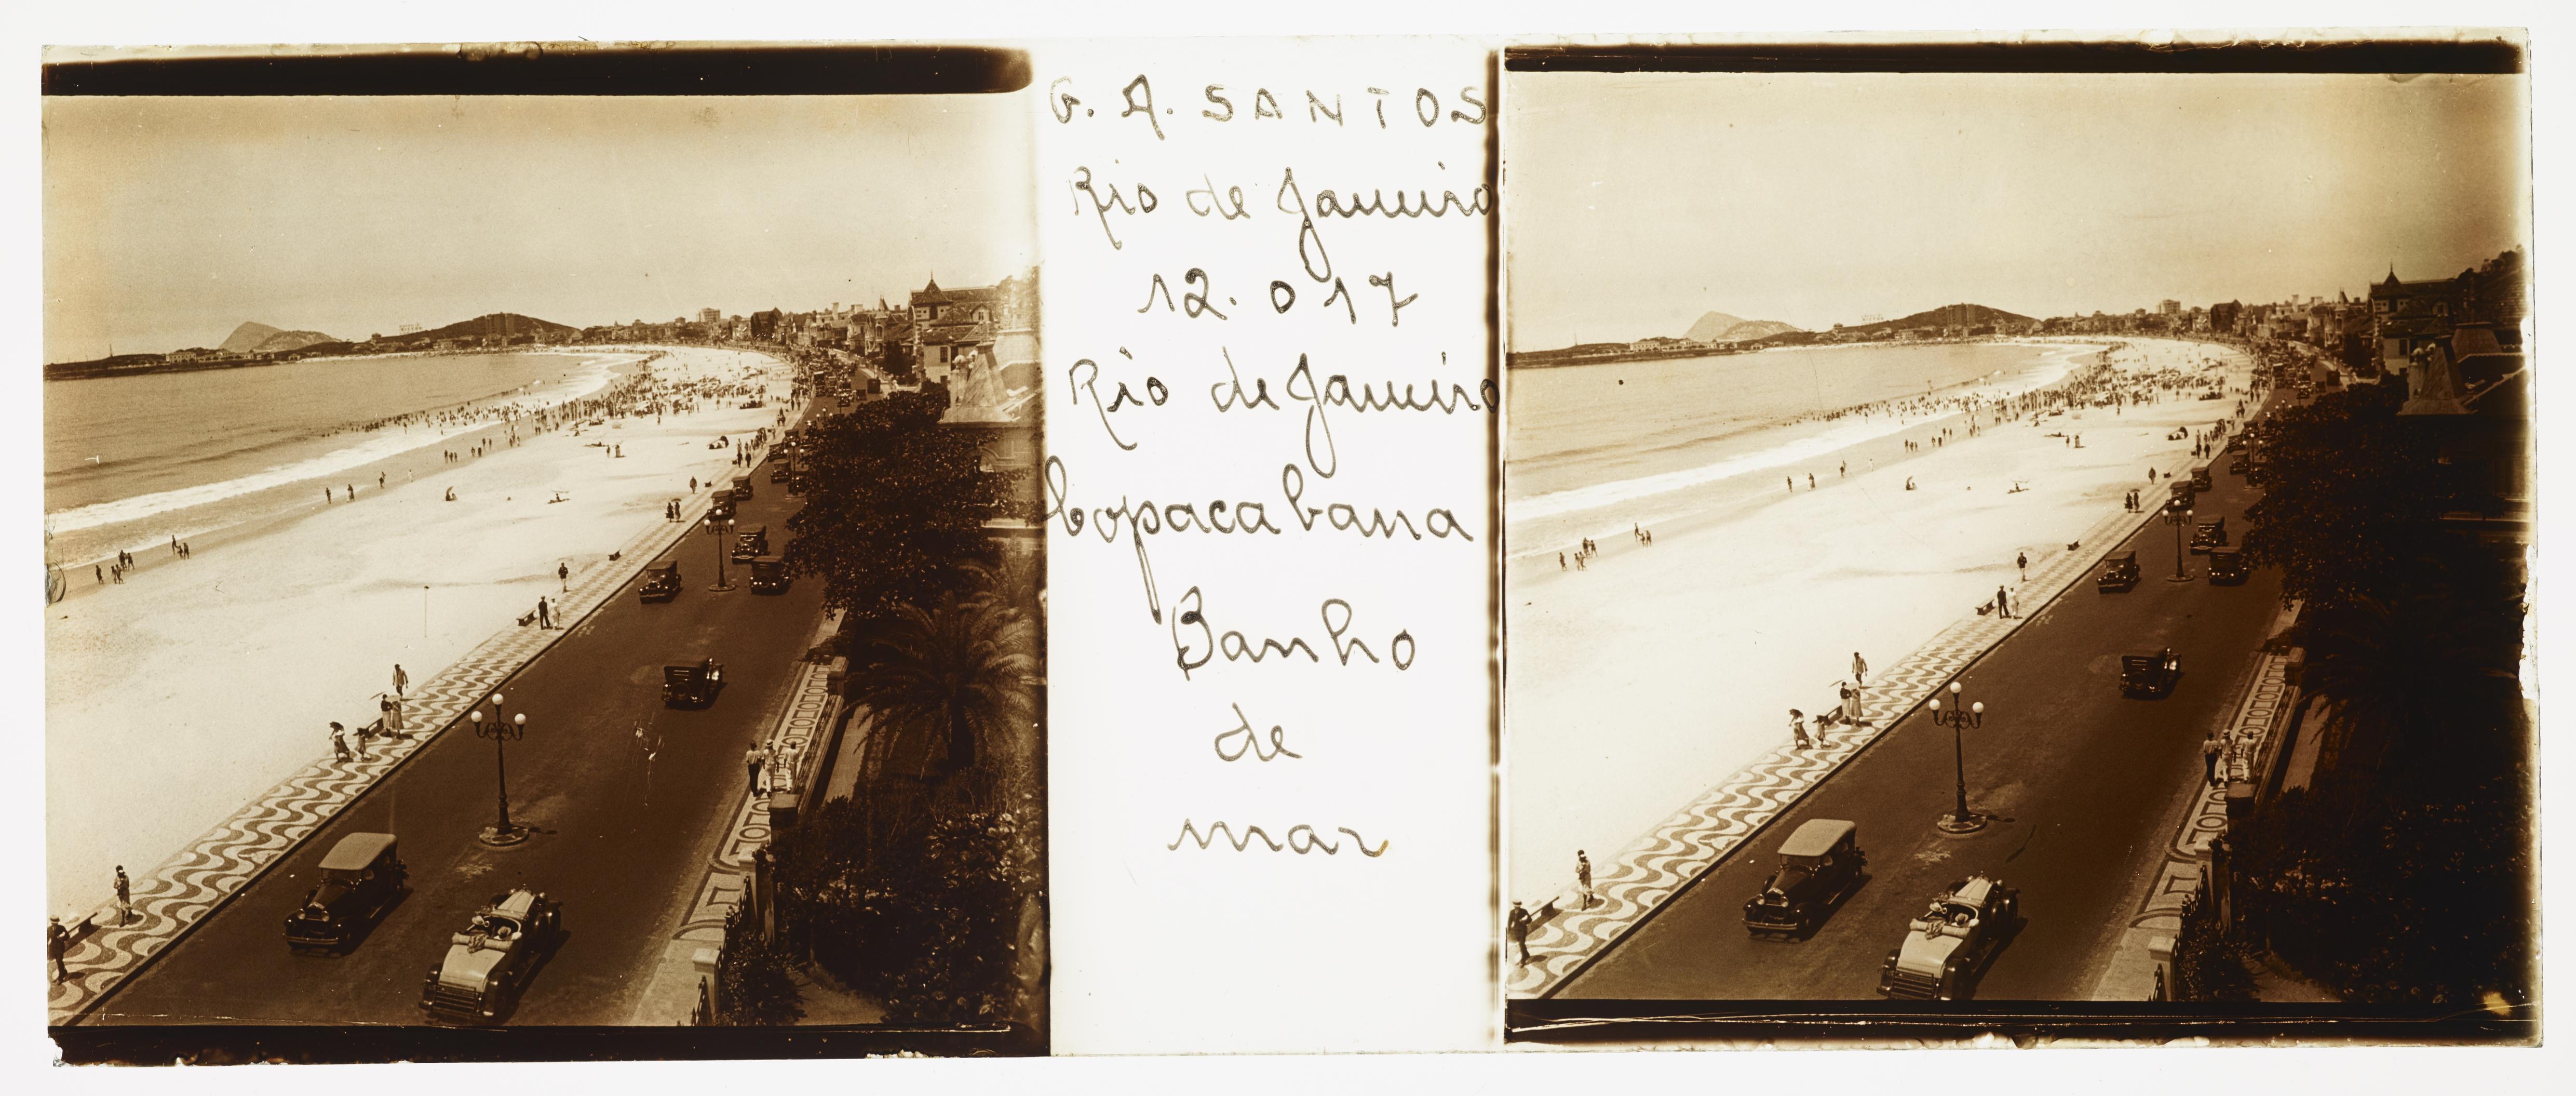 G. A. SANTOS
Rio de Janeiro
12.017
Rio de Janeiro
Copacabana
Banho
de
mar